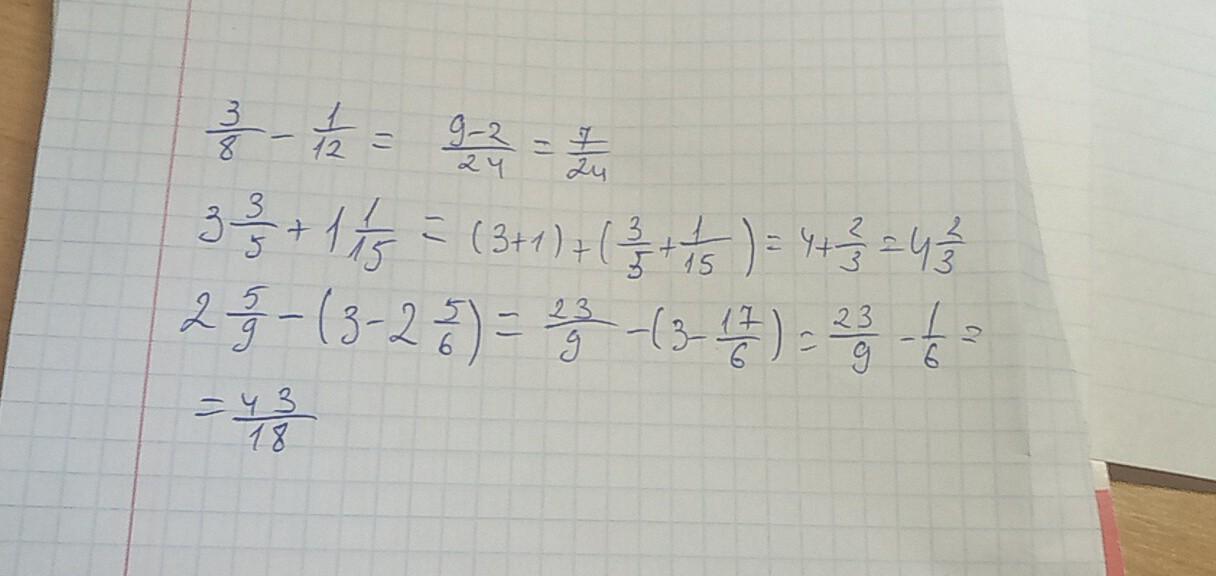 3/8 - 1/12 = (9-2)/24 = 7/24
3 3/5 + 1 1/15 = (3+1)+(3/5+1/15) = 4+2/3 = 4 2/3
2 5/9 - (3-2 5/6) = 23/9 - (3-17/6) = 23/9 - 1/6 =
= 43/18